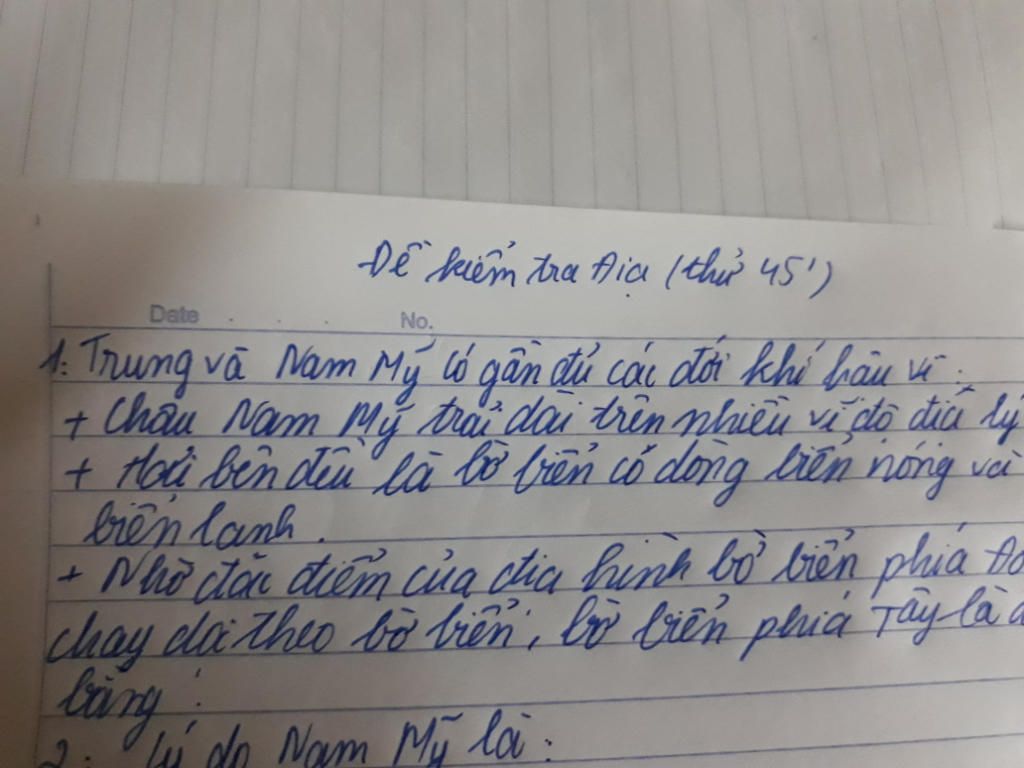 Đề kiểm tra Địa (thử 45')
Date . . . No.
1: Trung và Nam Mỹ có gần đủ các đới khí hậu vì:
+ Châu Nam Mỹ trải dài trên nhiều vĩ độ địa lý
+ Hai bên đều là bờ biển có dòng biển nóng và
biển lạnh.
+ Nhờ đặc điểm của địa hình bờ biển phía
chạy dài theo bờ biển, bờ biển phía Tây là
bằng.
2: lý do Nam Mỹ là: